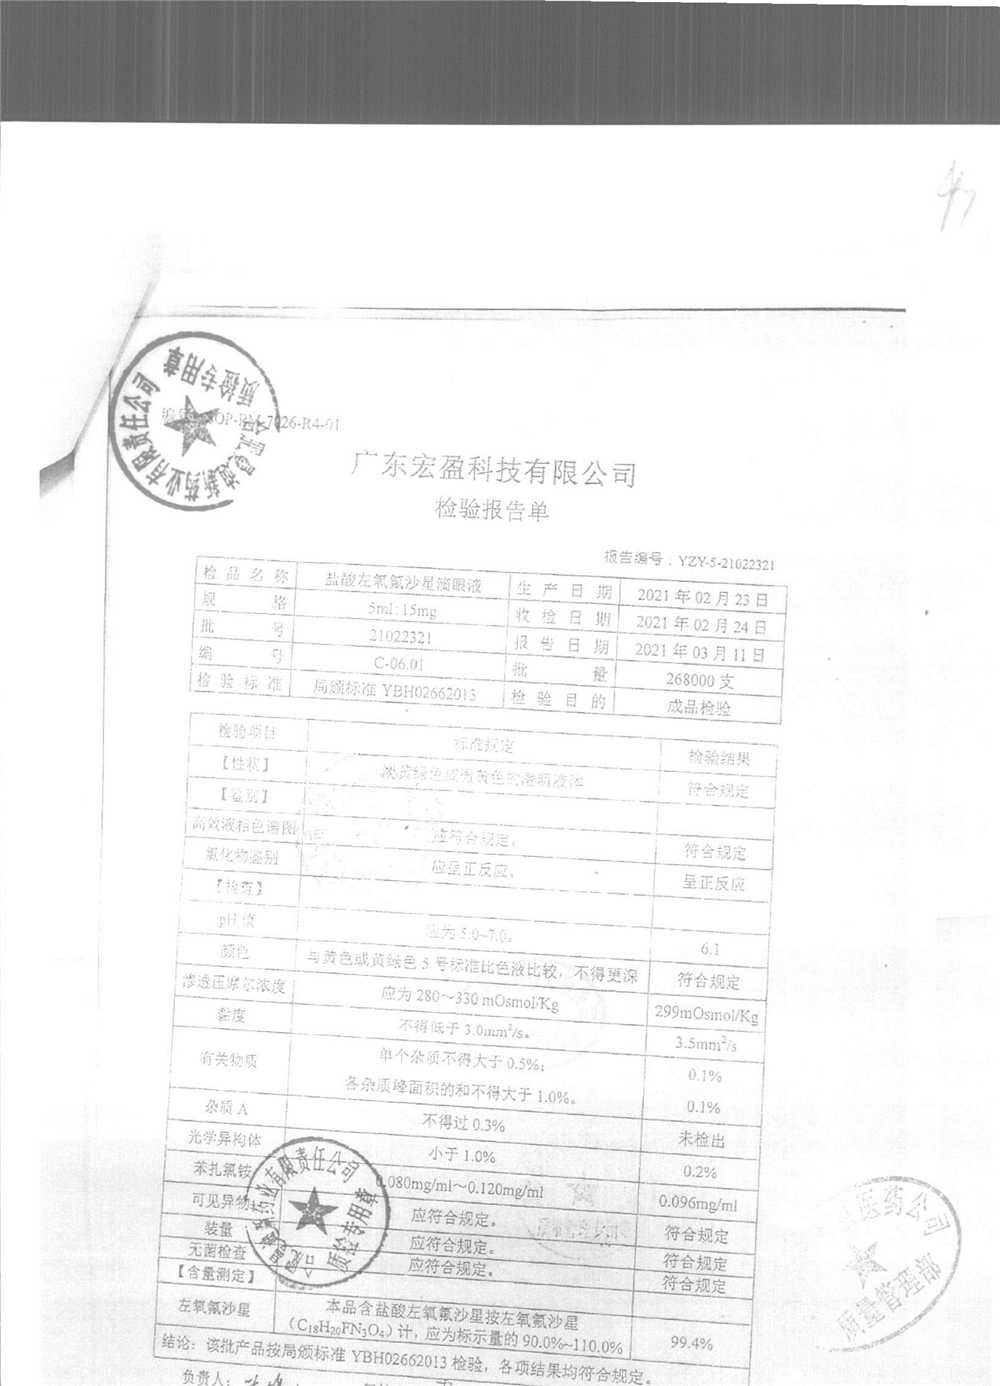 47
SOP-RM-7026-R4-01
广东宏盈科技有限公司
检验报告单
报告编号：YZY-5-21022321
检品名称 盐酸左氧氟沙星滴眼液 生产日期 2021年02月23日
规格 5ml:15mg 收检日期 2021年02月24日
批号 21022321 报告日期 2021年03月11日
编号 C-06.01 批量 268000支
检验标准 局颁标准YBH02662013 检验目的 成品检验
检验项目 标准规定 检验结果
【性状】 淡黄绿色或微黄色的澄明液体 符合规定
【鉴别】
高效液相色谱图 应符合规定。 符合规定
氯化物鉴别 应呈正反应。 呈正反应
【检查】
pH值 应为5.0~7.0。 6.1
颜色 与黄色或黄绿色5号标准比色液比较，不得更深 符合规定
渗透压摩尔浓度 应为280～330 mOsmol/Kg 299mOsmol/Kg
黏度 不得低于3.0mm²/s。 3.5mm²/s
有关物质 单个杂质不得大于0.5%； 0.1%
各杂质峰面积的和不得大于1.0%。 0.1%
杂质A 不得过0.3% 未检出
光学异构体 小于1.0% 0.2%
苯扎氯铵 0.080mg/ml～0.120mg/ml 0.096mg/ml
可见异物 应符合规定。 符合规定
装量 应符合规定。 符合规定
无菌检查 应符合规定。 符合规定
【含量测定】
左氧氟沙星 本品含盐酸左氧氟沙星按左氧氟沙星
（C₁₈H₂₀FN₃O₄）计，应为标示量的90.0%~110.0% 99.4%
结论：该批产品按局颁标准YBH02662013检验，各项结果均符合规定。
负责人：
药业有限责任公司
质检专用章
药业有限责任公司
质检专用章
医药公司
质量管理部